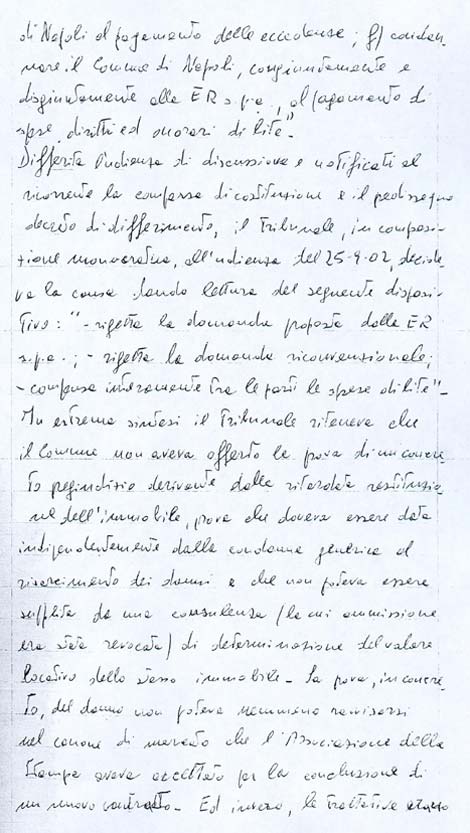 di Napoli al pagamento delle eccedenze; f) condan-
nare il Comune di Napoli, congiuntamente e
disgiuntamente alla ER s.p.a., al pagamento di
spese, diritti ed onorari di lite".
Differita l'udienza di discussione e notificati al
ricorrente la comparsa di costituzione e il pedissequo
decreto di differimento, il Tribunale, in composi-
zione monocratica, all'udienza del 25-9-02, decide-
va la causa dando lettura del seguente disposi-
tivo: "- rigetta la domanda proposta dalla ER
s.p.a.; - rigetta la domanda riconvenzionale;
- compensa interamente tra le parti le spese di lite" -
In estrema sintesi il Tribunale riteneva che
il Comune non aveva offerto la prova di un concre-
to pregiudizio derivante dalla ritardata restituzio-
ne dell'immobile, prova che doveva essere data
indipendentemente dalla condanna generica al
risarcimento dei danni e che non poteva essere
supplita da una consulenza (la cui ammissione
era stata revocata) di determinazione del valore
locativo dello stesso immobile - La prova, in concre-
to, del danno non poteva nemmeno ravvisarsi
nel canone di mercato che l'Associazione della
Stampa aveva accettato per la conclusione di
un nuovo contratto - Ed invero, le trattative